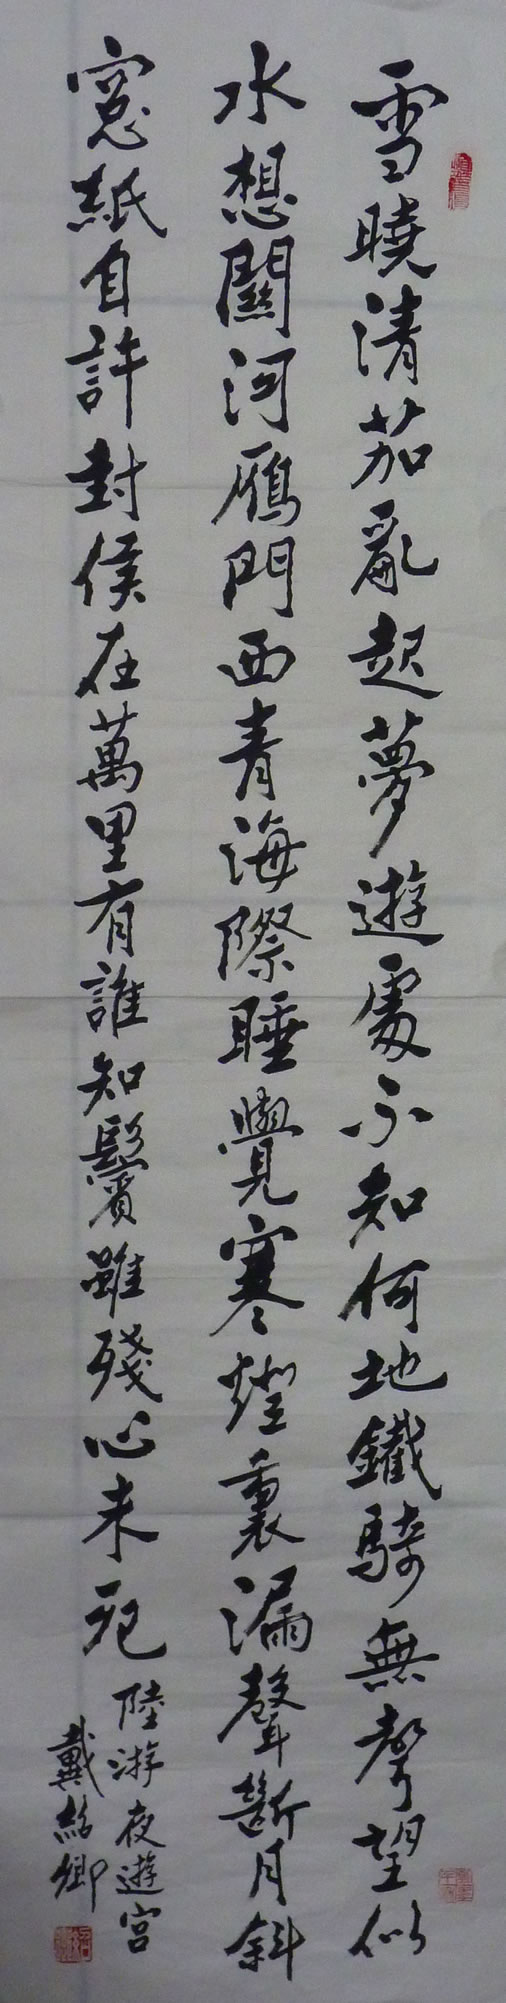 雪曉清茄亂起夢遊處不知何地鐵騎無聲望似
水想關河雁門西青海際睡覺寒燈裏漏聲斷月斜
窓紙自許封侯在萬里有誰知鬢雖殘心未死
陸游夜遊宮
戴紹卿